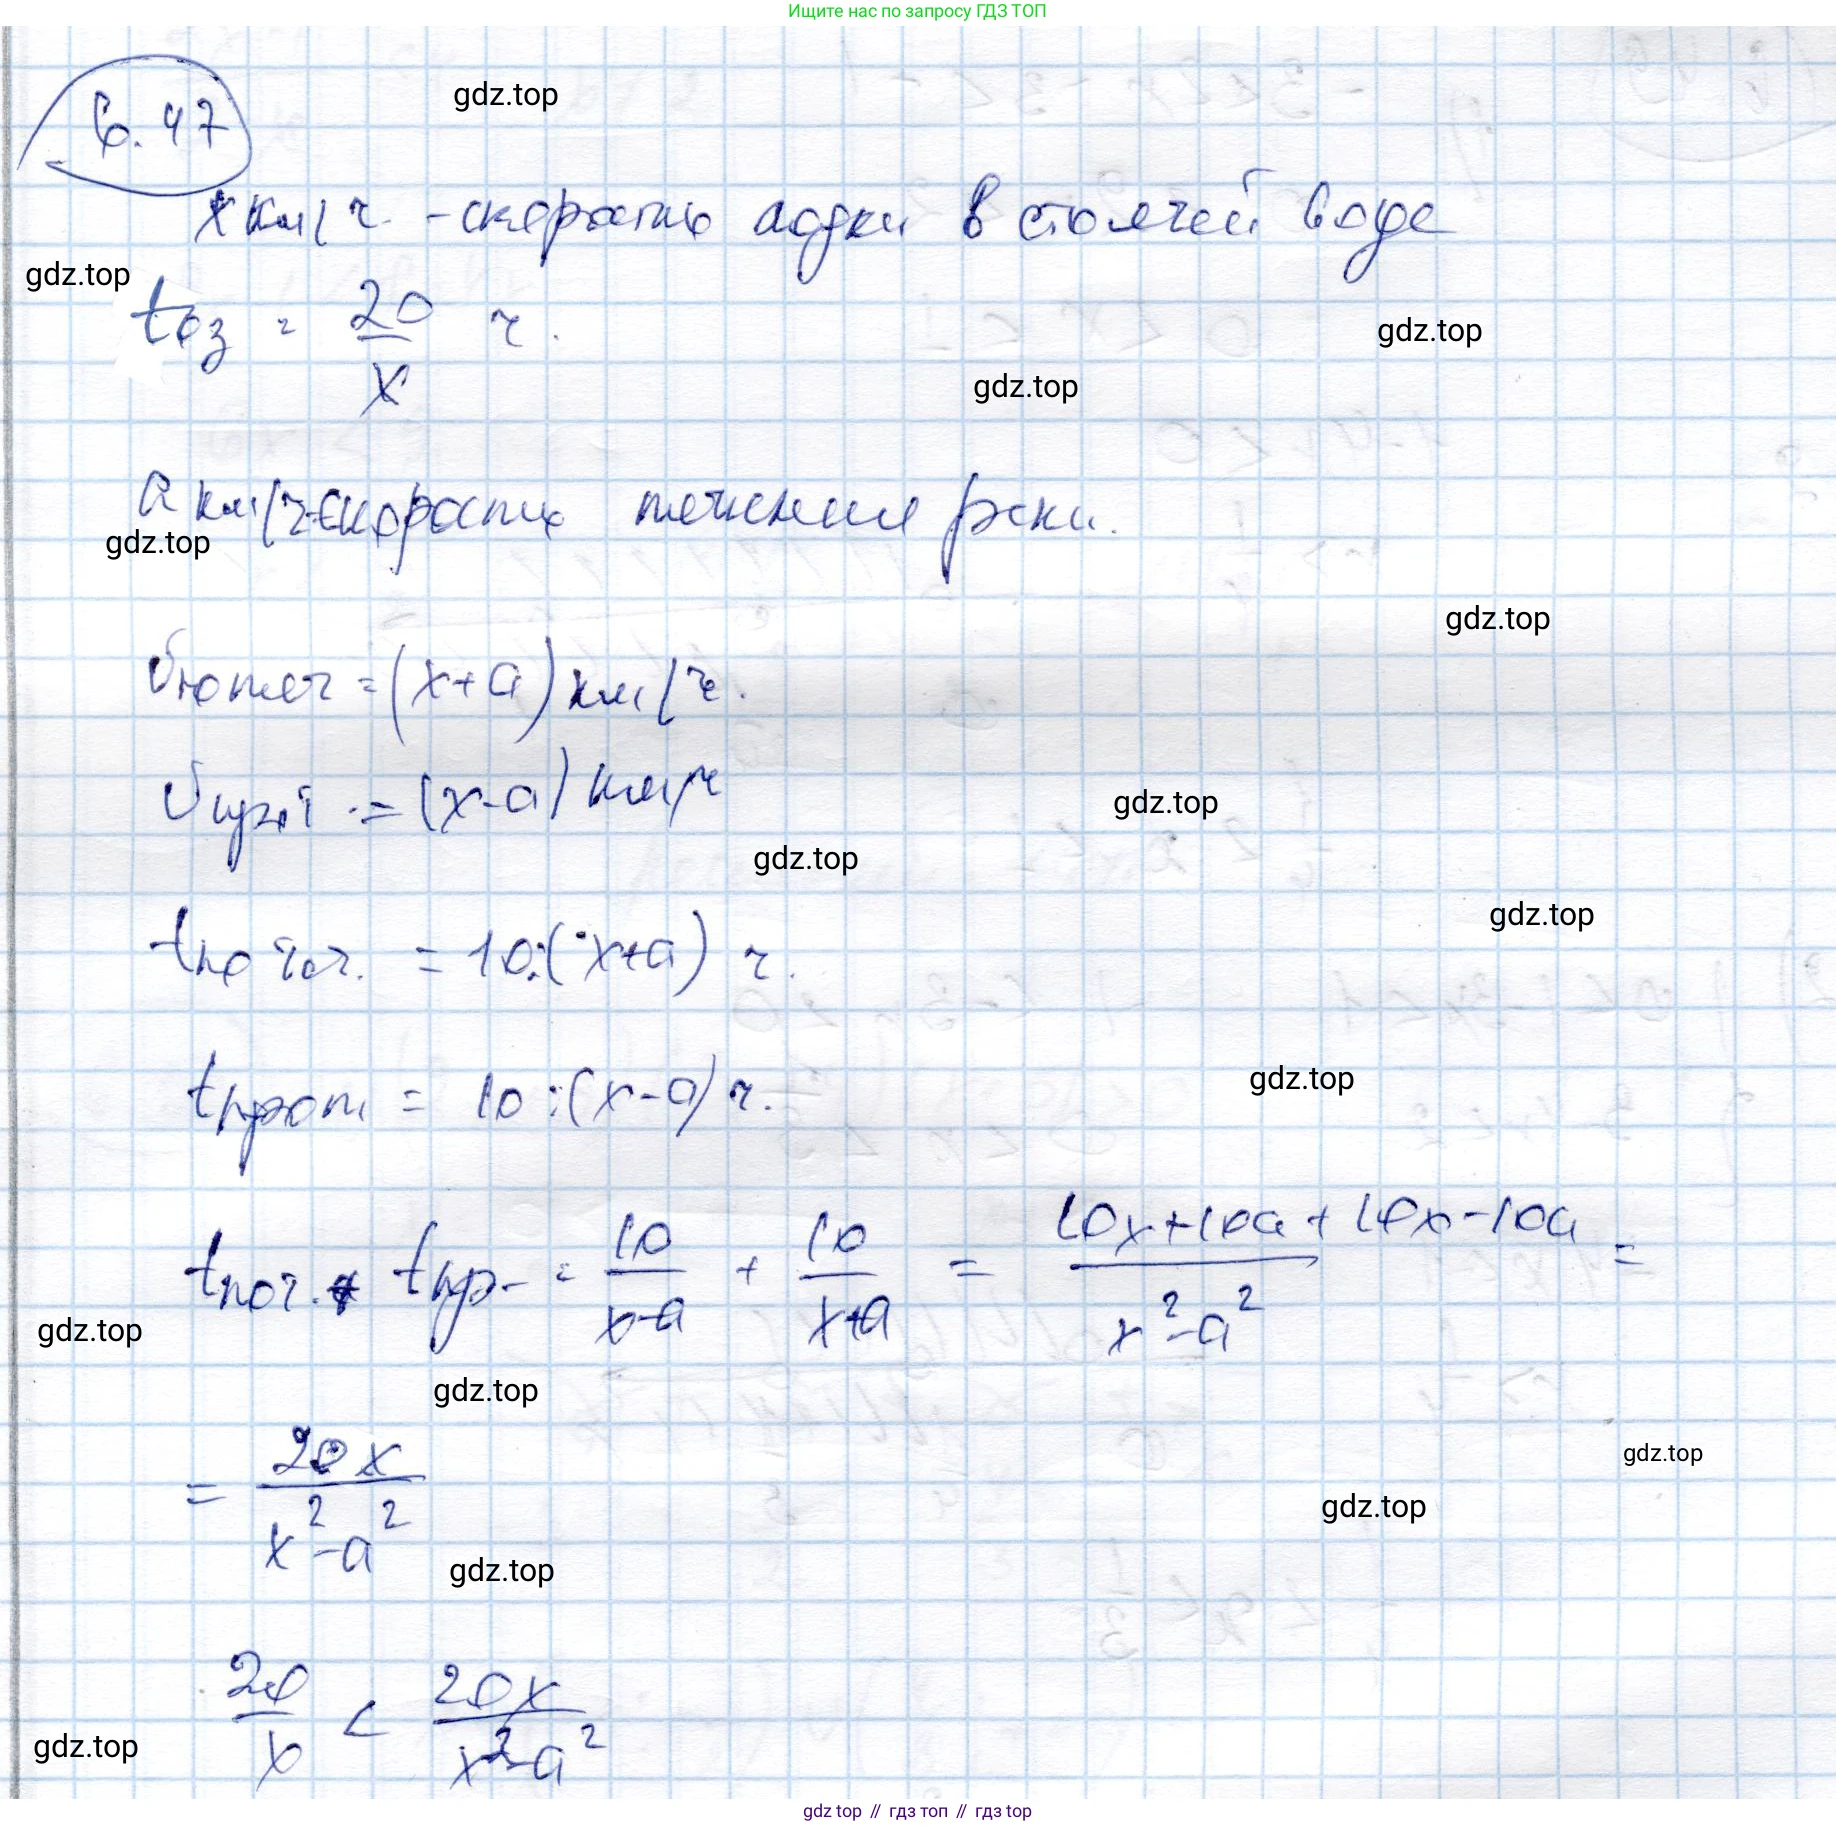 Ищите нас по запросу ГДЗ ТОП
6.47
gdz.top
x км/ч. - скорость лодки в стоячей воде
gdz.top
tоз = 20/x ч.
gdz.top
gdz.top
a км/ч - скорость течения реки.
gdz.top
gdz.top
vпо теч = (x+a) км/ч.
= (x-a) км/ч
gdz.top
gdz.top
gdz.top
tпо теч. = 10:(x+a) ч.
gdz.top
tпрот = 10:(x-a) ч.
tпо т. + tпр. = 10/(x-a) + 10/(x+a) = (10x+10a+10x-10a)/(x²-a²) =
gdz.top
gdz.top
= 20x/(x²-a²)
gdz.top
gdz.top
gdz.top
20/x < 20x/(x²-a²)
gdz.top
gdz top // гдз топ // гдз top